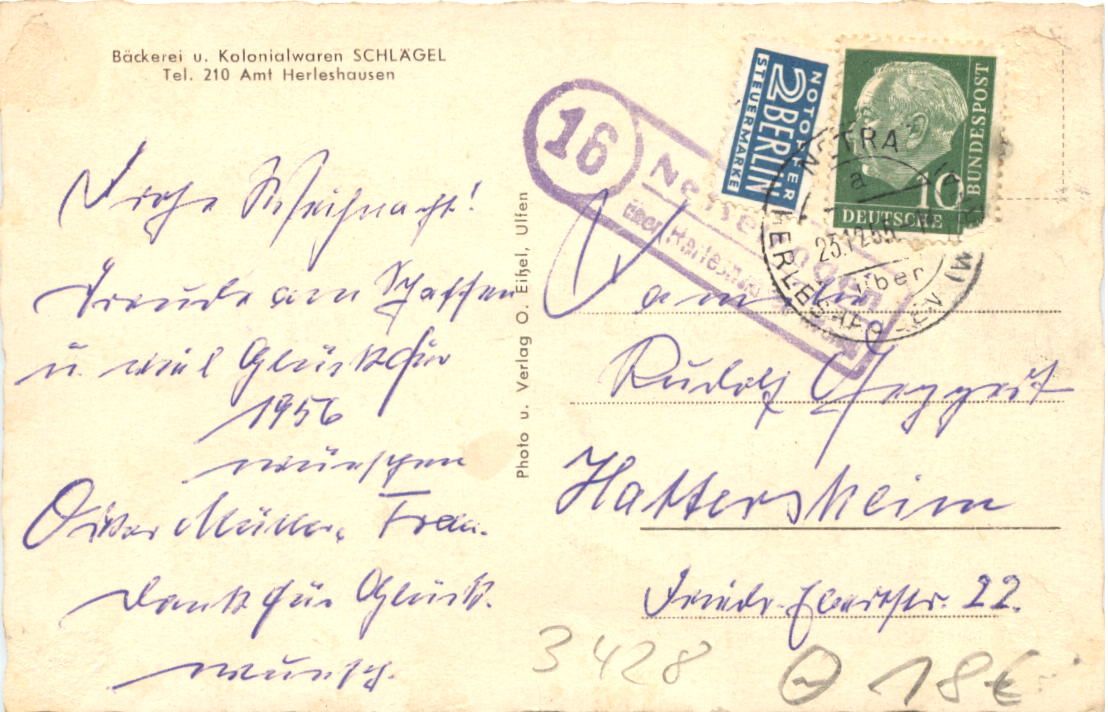 Bäckerei u. Kolonialwaren SCHLÄGEL
Tel. 210 Amt Herleshausen
Frohe Weihnacht!
Freude am Schaffen
u. viel Glück für
1956
wünschen
Oskar Müller u. Frau.
Dank für Glück-
wunsch.
Photo u. Verlag O. Eißel, Ulfen
16
über Herleshausen
NOTOPFER
2 BERLIN
STEUERMARKE
DEUTSCHE
BUNDESPOST
10
NETRA
a
23.12.55
über
Familie
Rudolf
Hattersheim
Friedr. Ebertstr. 22.
3428
18 €